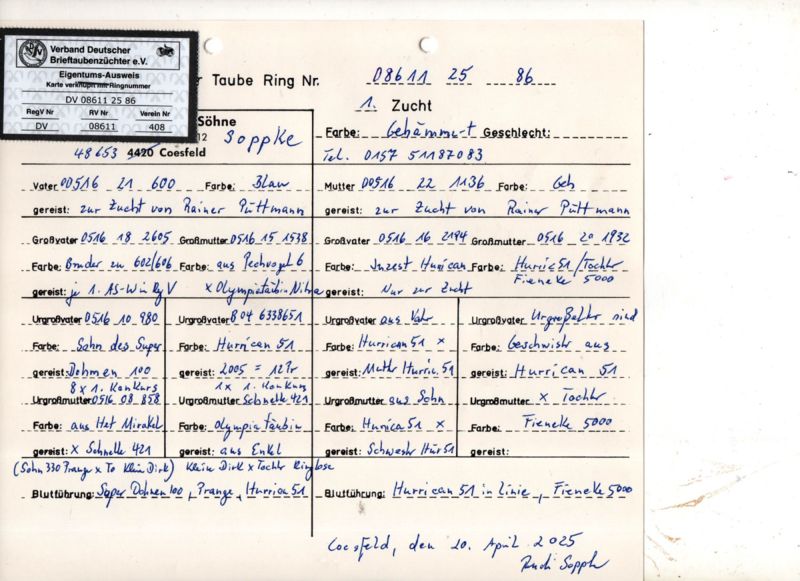 Verband Deutscher
Brieftaubenzüchter e.V.
Eigentums-Ausweis
Karte verknüpft mit Ringnummer
DV 08611 25 86
RegV Nr RV Nr Verein Nr
DV 08611 408
r Taube Ring Nr. 08611 25 86
1. Zucht
Söhne
12 Soppke
48653 4420 Coesfeld
Farbe: Gehämmert Geschlecht:
Tel. 0157 51187083
Vater 00516 21 600 Farbe: Blau
gereist: zur Zucht von Rainer Püttmann
Mutter 00516 22 1136 Farbe: Geh
gereist: zur Zucht von Rainer Püttmann
Großvater 0516 18 2605 Großmutter 0516 15 1538
Farbe: Bruder zu 602/606 Farbe: aus Pechvogel 6
gereist: je 1. AS-Win Rg V x Olympiatäubin Nitra
Großvater 0516 16 2194 Großmutter 0516 20 1932
Farbe: Inzest Hurrican Farbe: Hurric 51/Tochter
Fieneke 5000
gereist: Nur zur Zucht
Urgroßvater 0516 10 980 Urgroßvater B04 6338651
Farbe: Sohn des Super Farbe: Hurrican 51
gereist: Dohmen 100 gereist: 2005 = 12 Pr
8 x 1. Konkurs 1 x 1. Konkurs
Urgroßmutter 0516 08 858 Urgroßmutter Schnelle 421
Farbe: aus Het Mirakel Farbe: Olympiatäubin
gereist: x Schnelle 421 gereist: aus Enkel
(Sohn 330 Prange x To Klein Dirk) Klein Dirk x Tochter Ringlose
Blutführung: Super Dohmen 100, Prange, Hurrican 51
Urgroßvater aus Vater Urgroßvater Urgroßelter sind
Farbe: Hurrican 51 x Farbe: Geschwister aus
gereist: Mutter Hurric 51 gereist: Hurrican 51
Urgroßmutter aus Sohn Urgroßmutter x Tochter
Farbe: Hurrica 51 x Farbe: Fieneke 5000
gereist: Schwester Hur 51 gereist:
Blutführung: Hurrican 51 in Linie, Fieneke 5000
Coesfeld, den 20. April 2025
Rudi Soppke